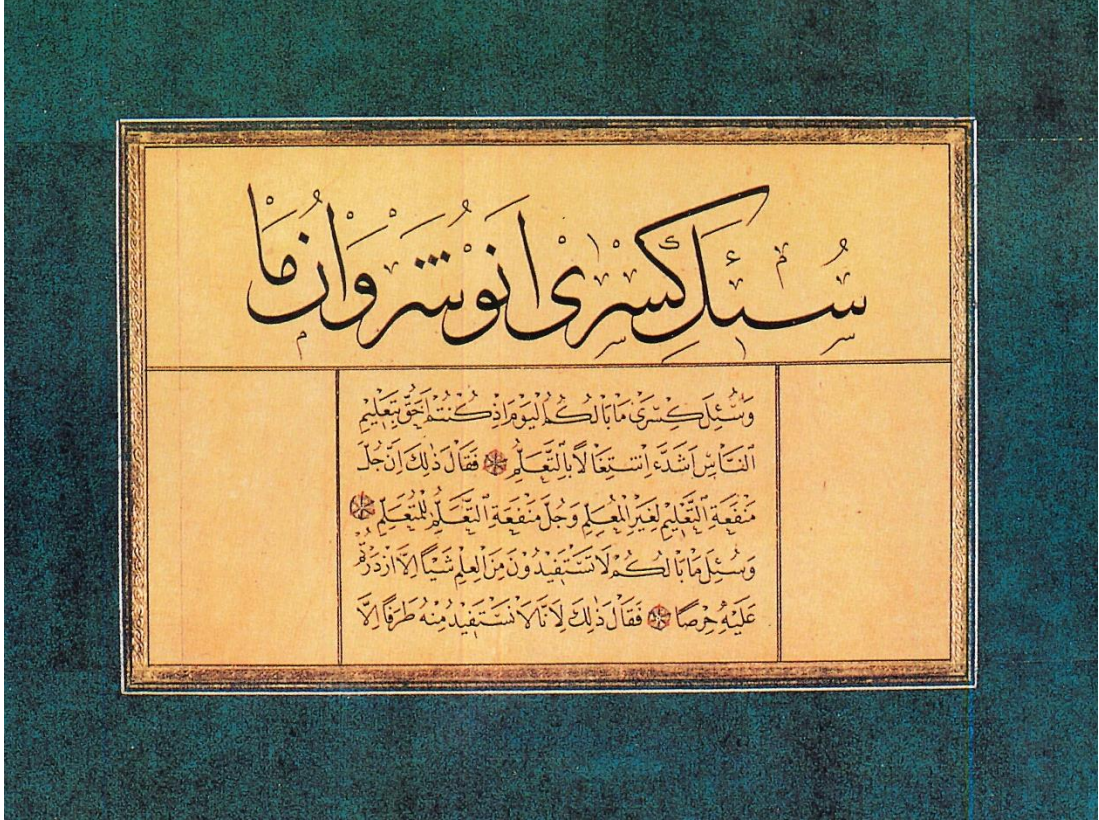 سُئِلَ كِسْرٰى اَنُوشَرْوَانُ مَا
وَسُئِلَ كِسْرٰى مَا بَالُكُمُ الْيَوْمَ اِذْ كُنْتُمْ اَحَقَّ بِتَعْلِيمِ
النَّاسِ اَشَدَّ اِشْتِغَالًا بِالتَّعَلُّمِ فَقَالَ ذٰلِكَ اِنَّ جُلَّ
مَنْفَعَةِ التَّعْلِيمِ لِغَيْرِ الْمُعَلِّمِ وَجُلَّ مَنْفَعَةِ التَّعَلُّمِ لِلْمُتَعَلِّمِ
وَسُئِلَ مَا بَالُكُمْ لَا تَسْتَفِيدُونَ مِنَ الْعِلْمِ شَيْاً اِلَّا ازْدَدْتُمْ
عَلَيْهِ حِرْصًا فَقَالَ ذٰلِكَ لِاَنَّا لَا نَسْتَفِيدُ مِنْهُ طَرَفًا اِلَّا